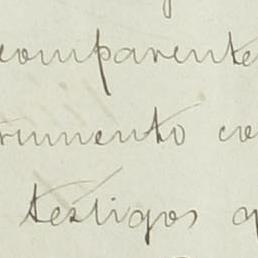 comparente
rumento co
testigos q